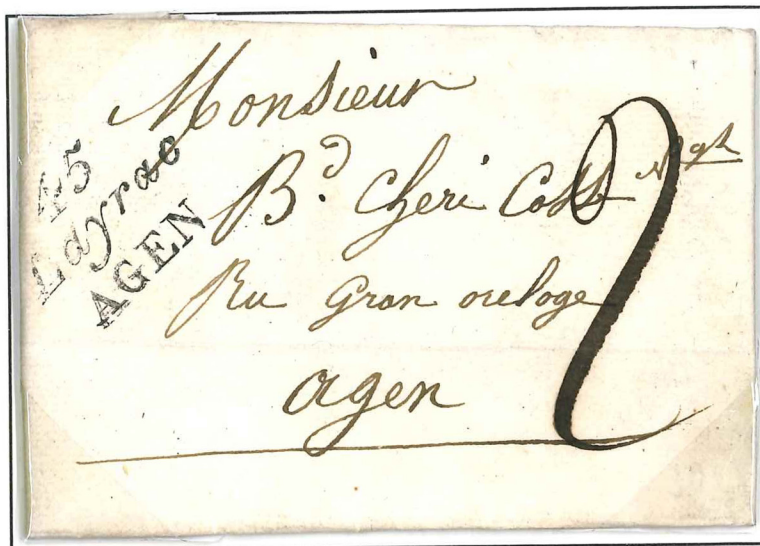 45
Layrac
AGEN
Monsieur
B.d Cheri
Ru Gran oreloge
agen
2